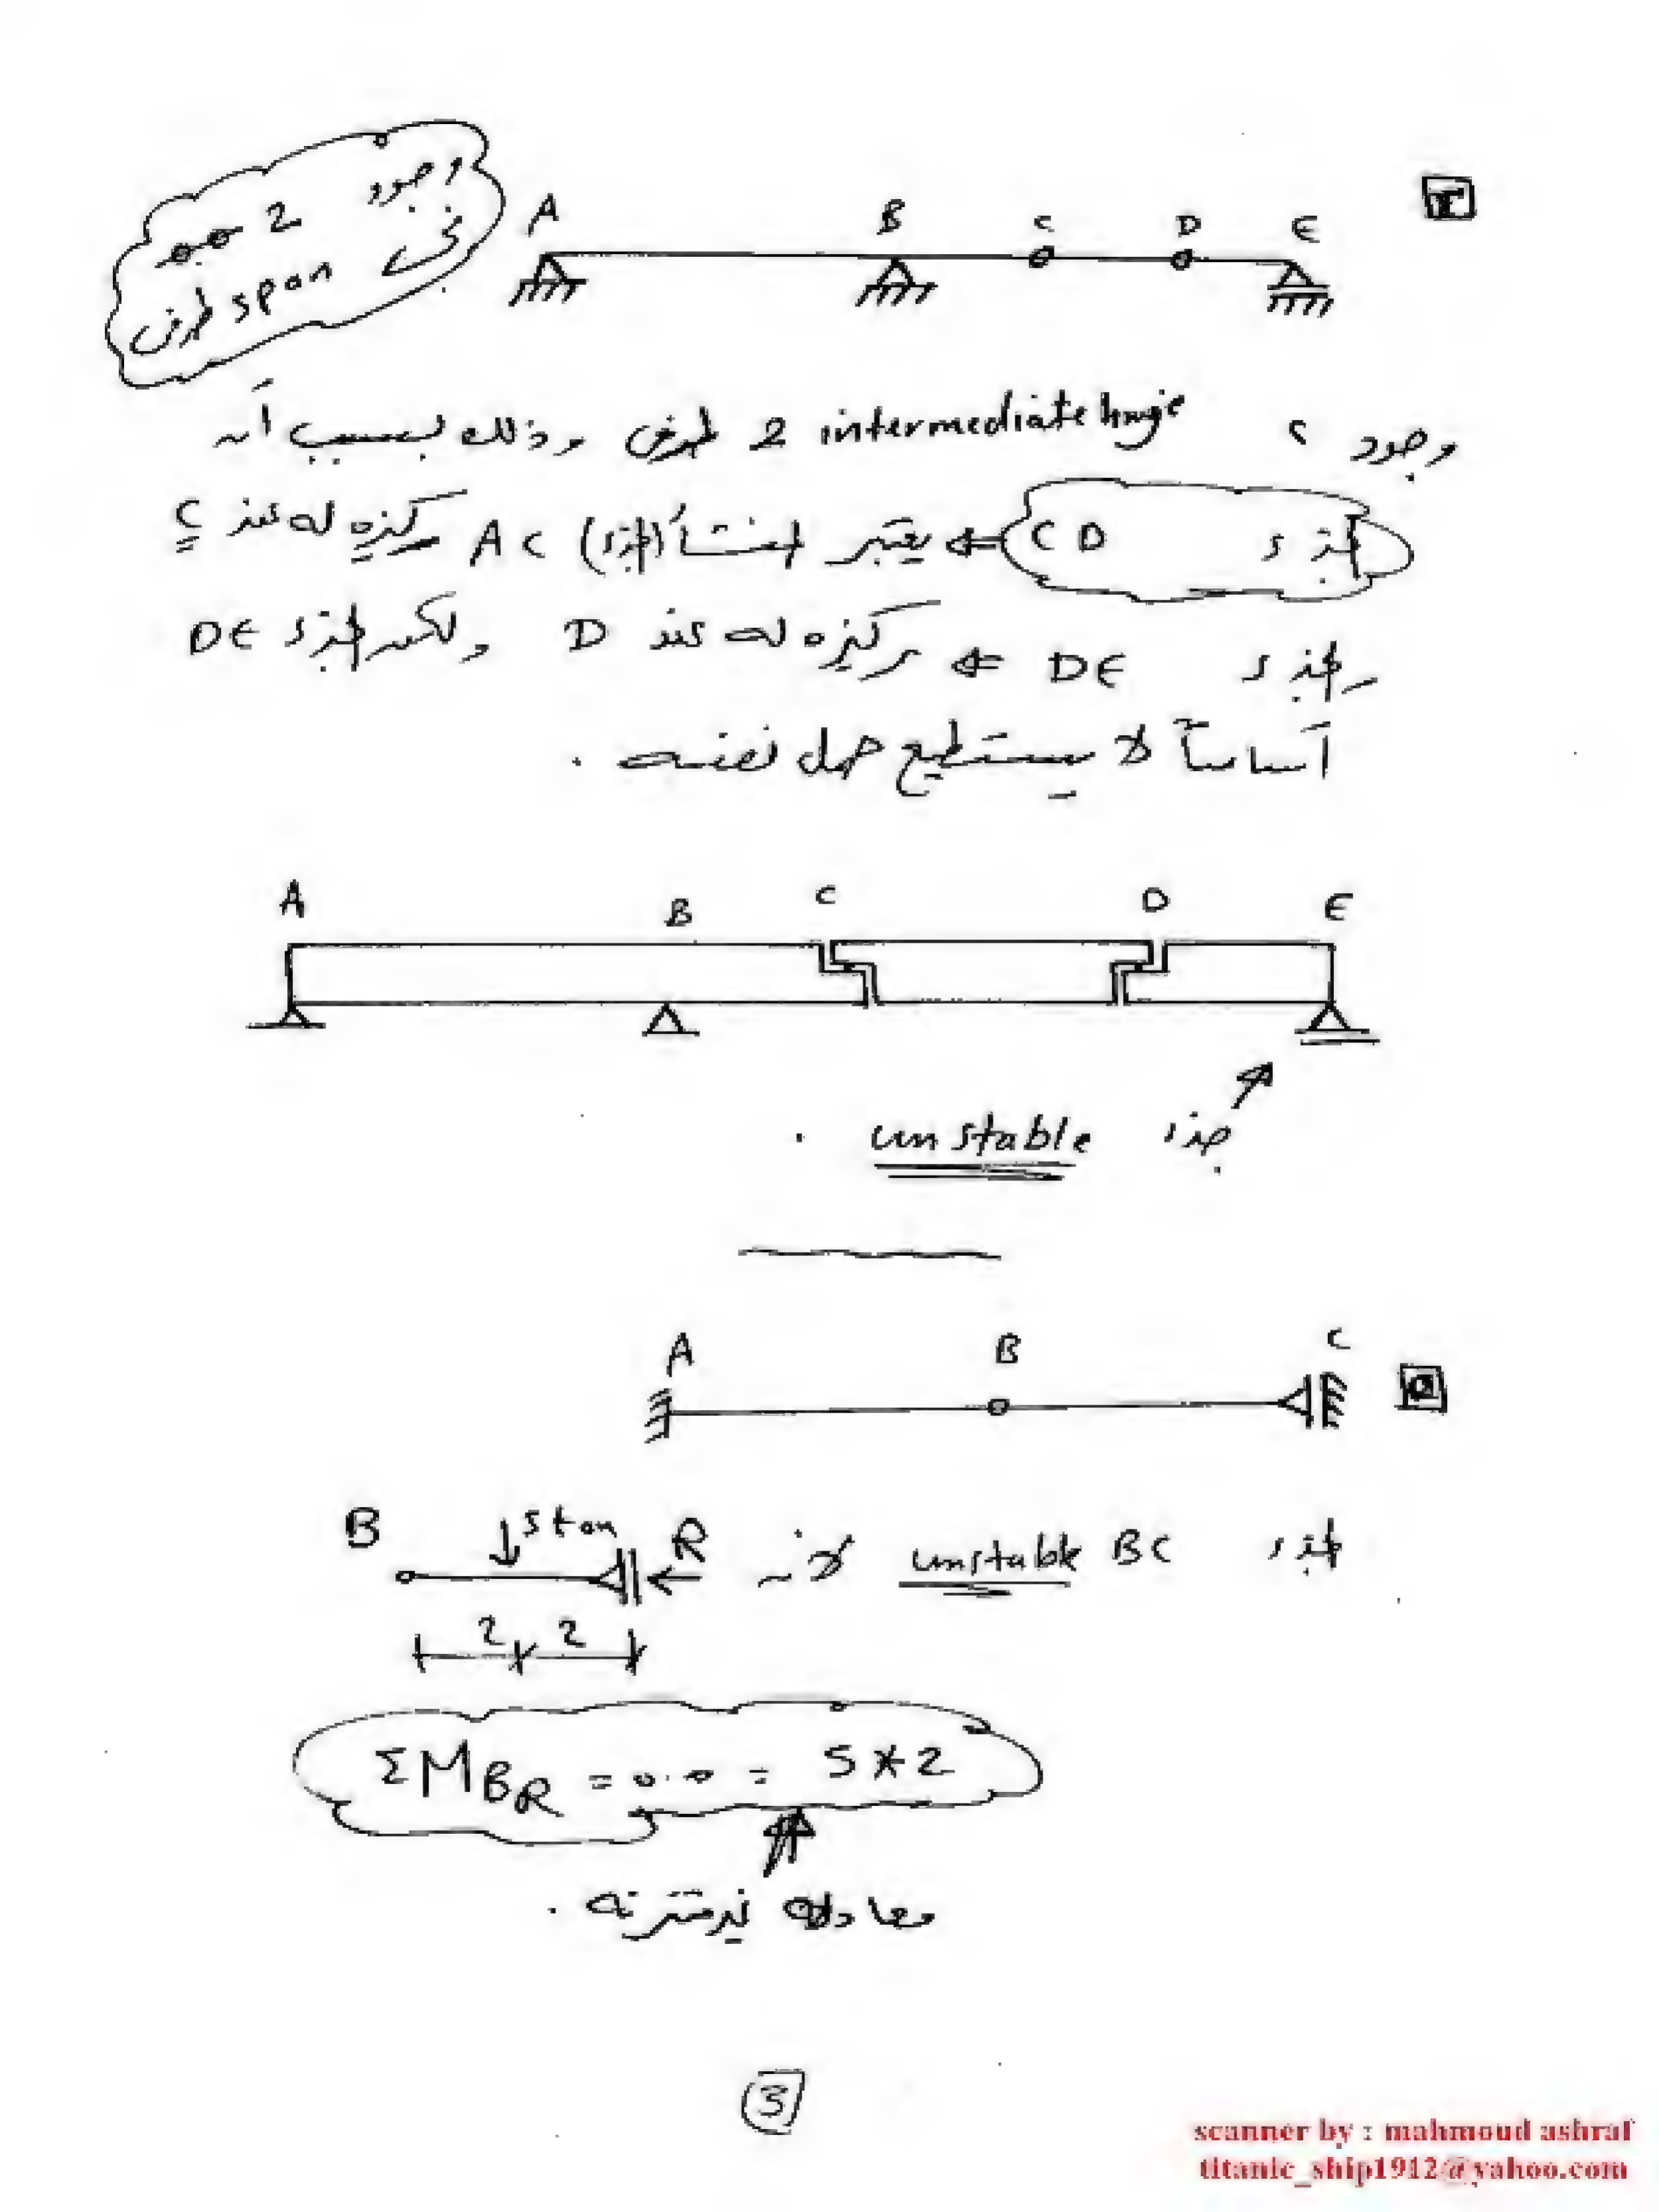 وجود
2
في
span طرفى
A B C D E
وجود 2 intermediate hinge طرفى وذلك بسبب أن
الجزء CD ⇐ يعتبر المنشأ (الجزء) AC ركيزه له عند C
والجزء DE ⇐ ركيزه له عند D ولكن الجزء DE
أساساً لا يستطيع حمل نفسه .
A B C D E
جزء unstable .
A B C
الجزء BC unstable لأن
B 5 ton R
2 2
ΣM_BR = 0.0 = 5*2
معادلة غير متزنه .
3
scanner by : mahmoud ashraf
titanic_ship1912@yahoo.com